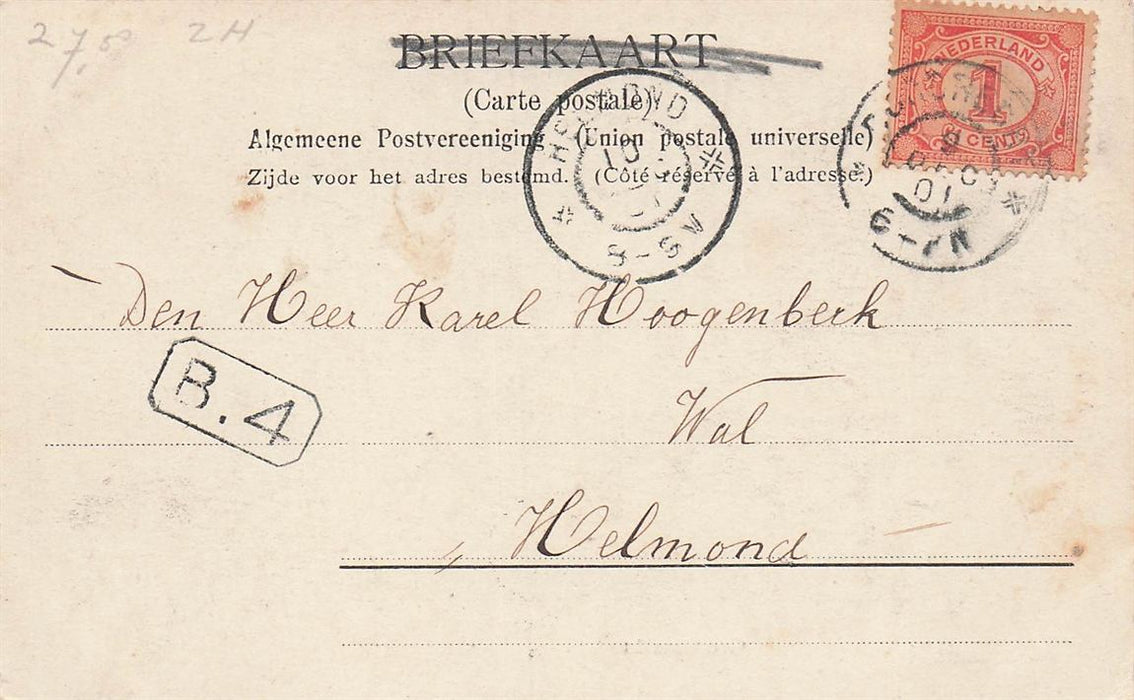 27,50 ZH
BRIEFKAART
(Carte postale)
Algemeene Postvereeniging (Union postale universelle)
Zijde voor het adres bestemd. (Côté réservé à l'adresse.)
NEDERLAND
1
CENT
HELMOND
10
8-9V
9
DEC
01
6-7N
Den Heer Karel Hoogenberk
B.4
Wal
Helmond